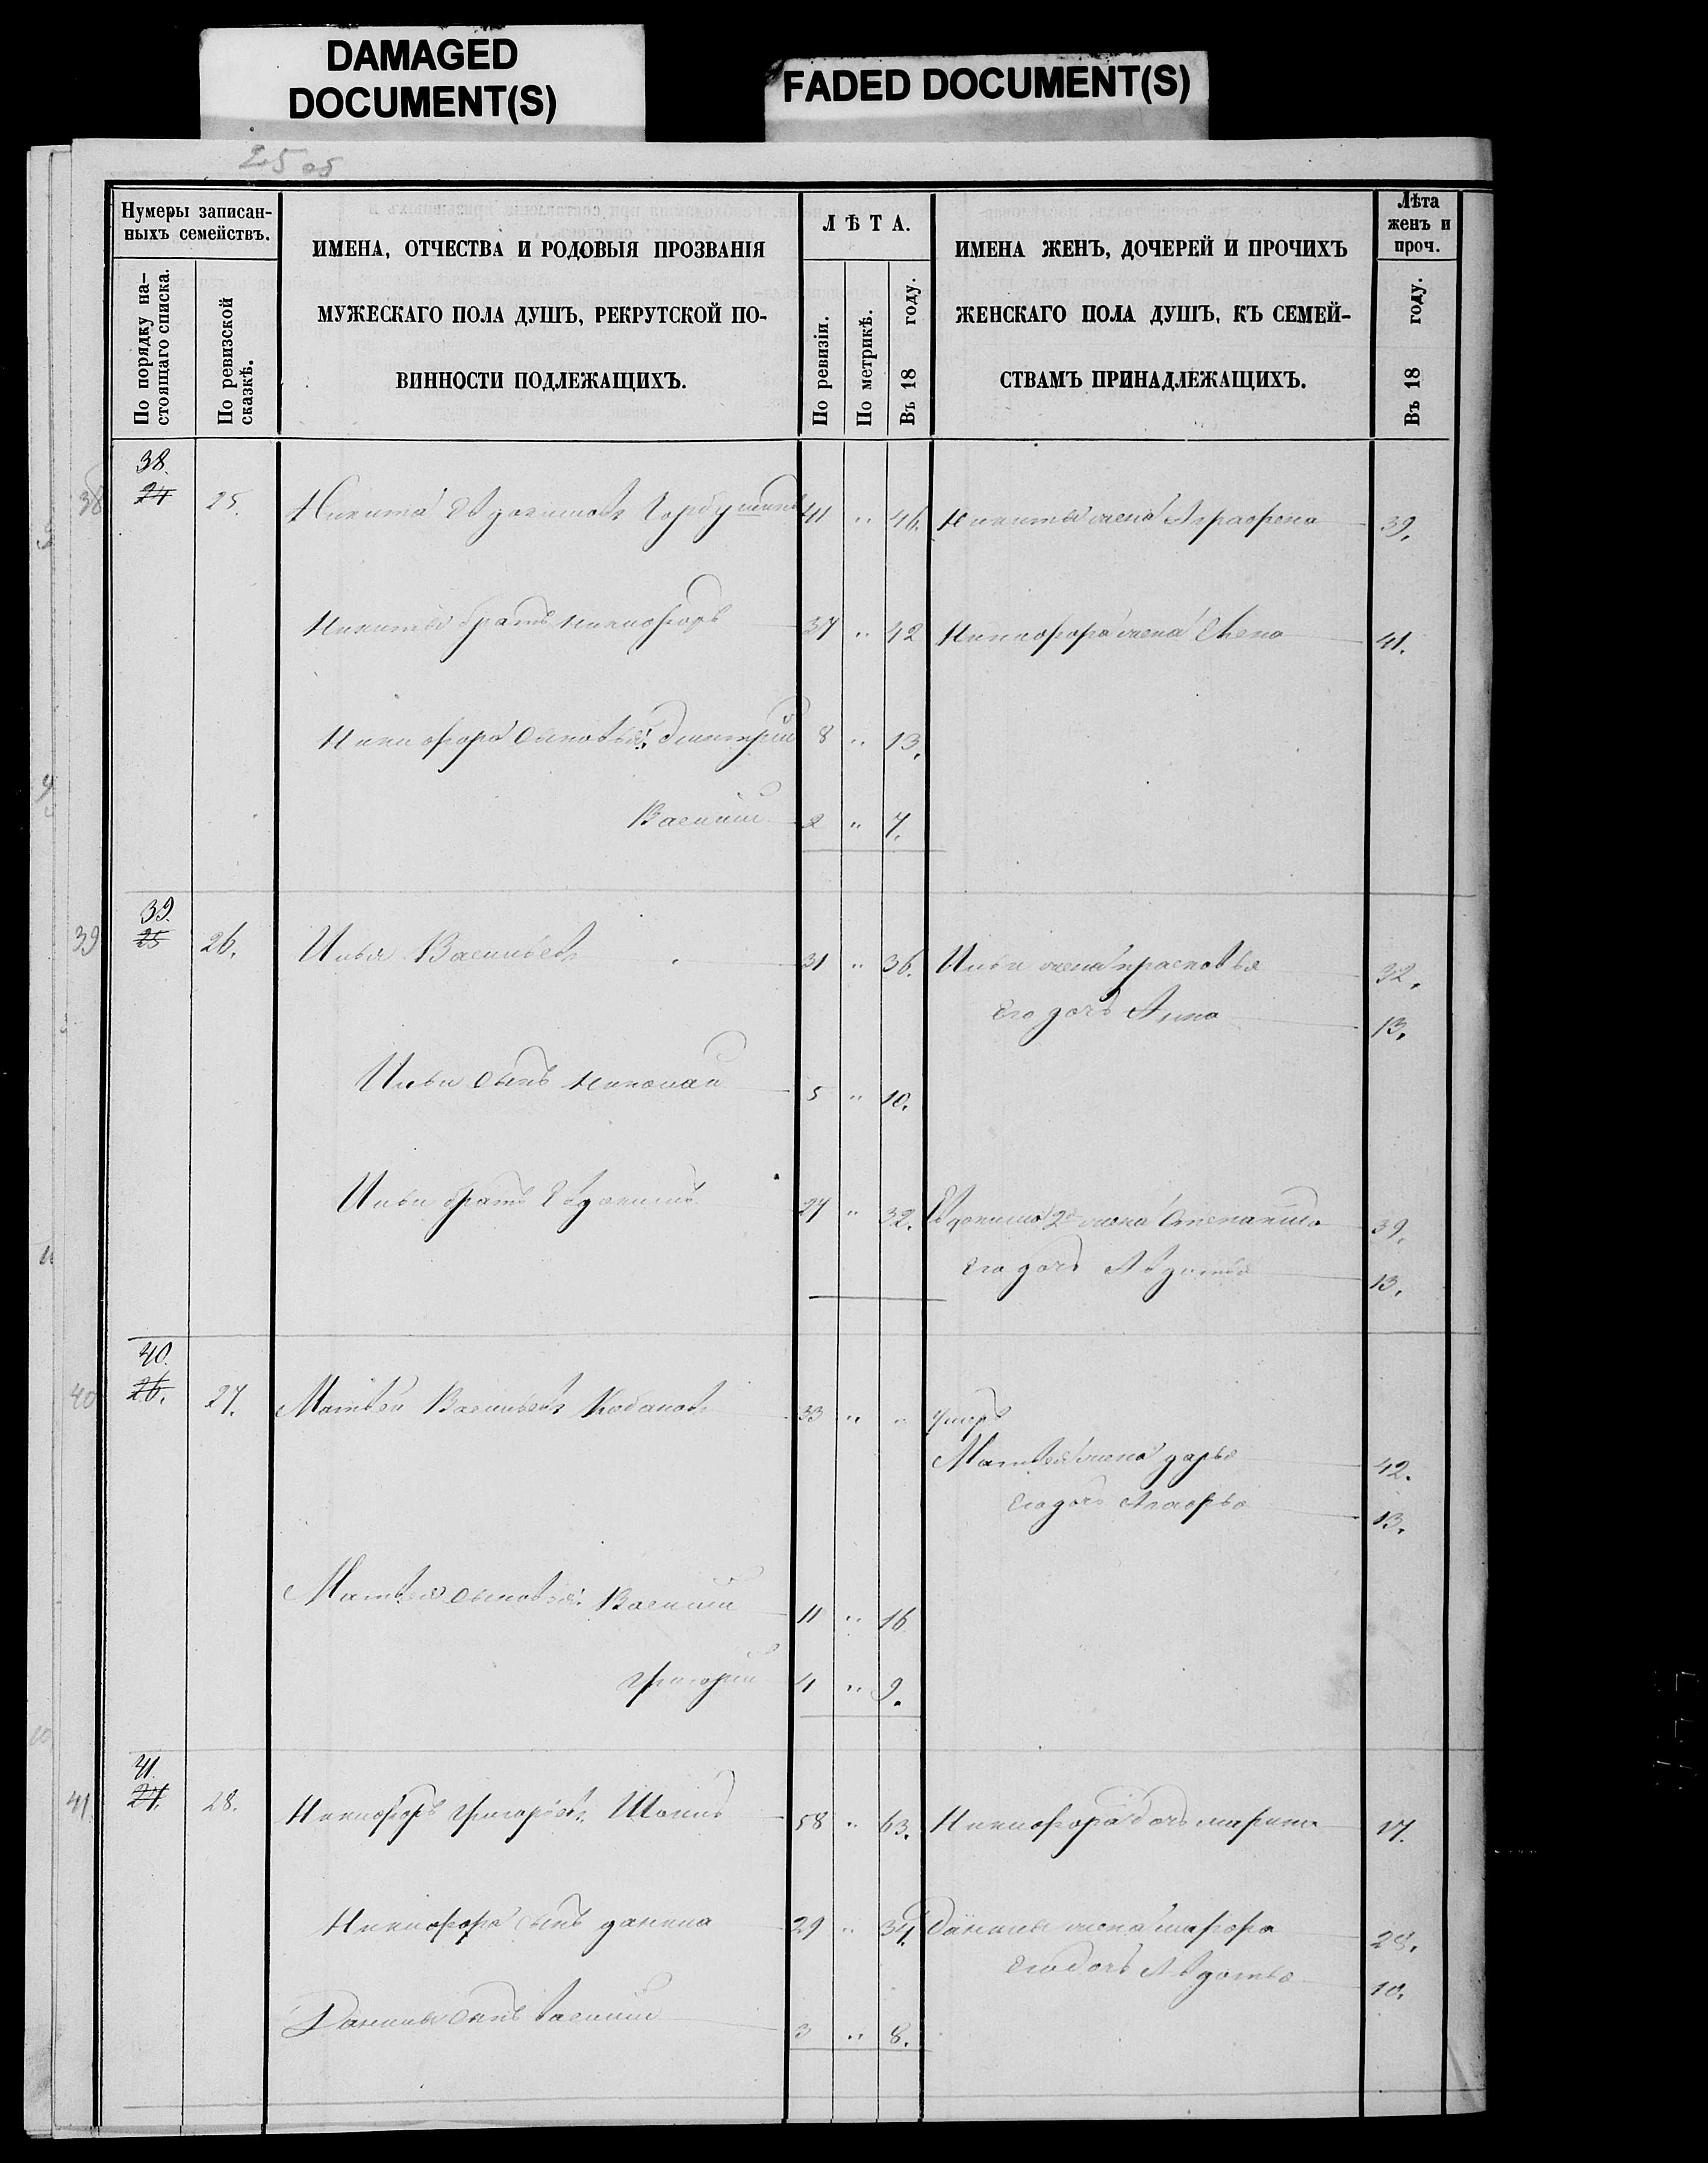 DAMAGED
DOCUMENT(S)
FADED DOCUMENT(S)
25 об
Нумеры записан-
ныхъ семействъ.
По порядку на-
стоящаго списка.
По ревизской
сказкѣ.
ИМЕНА, ОТЧЕСТВА И РОДОВЫЯ ПРОЗВАНІЯ
МУЖЕСКАГО ПОЛА ДУШЪ, РЕКРУТСКОЙ ПО-
ВИННОСТИ ПОДЛЕЖАЩИХЪ.
ЛѢТА.
По ревизіи.
По метрикѣ.
Въ 18 году.
ИМЕНА ЖЕНЪ, ДОЧЕРЕЙ И ПРОЧИХЪ
ЖЕНСКАГО ПОЛА ДУШЪ, КЪ СЕМЕЙ-
СТВАМЪ ПРИНАДЛЕЖАЩИХЪ.
Лѣта
женъ и
проч.
Въ 18 году.
38 38. 24 25. Никита Евдокимовъ 41 " 46. Никиты жена Аграфена 39.
Никиты братъ Никифоръ 37 " 42 Никифора жена Елена 41.
Никифора сыновья: Дмитрий 8 " 13.
Василий 2 " 7.
39 39. 25 26. Илья Васильевъ 31 " 36. Ильи жена Прасковья 32.
Его дочь Анна 13.
Ильи сынъ Николай 5 " 10.
Ильи братъ Евдокимъ 27 " 32. Евдокима 2я жена Степанида 39.
Его дочь Авдотья 13.
40 40. 26. 27. Матвей Васильевъ Кабановъ 33 " " Умеръ
Матвея жена Дарья 42.
Его дочь 13.
Матвея сыновья: Василий 11 " 16
Григорий 4 " 9.
41. 41. 27. 28. Никифоръ Григорьевъ 58 " 63. Никифора дочь Марина 17.
Никифора сынъ Данила 29 " 34. Данилы жена Марфа 28.
Его дочь Авдотья 10.
Данилы сынъ Василий 3 " 8.